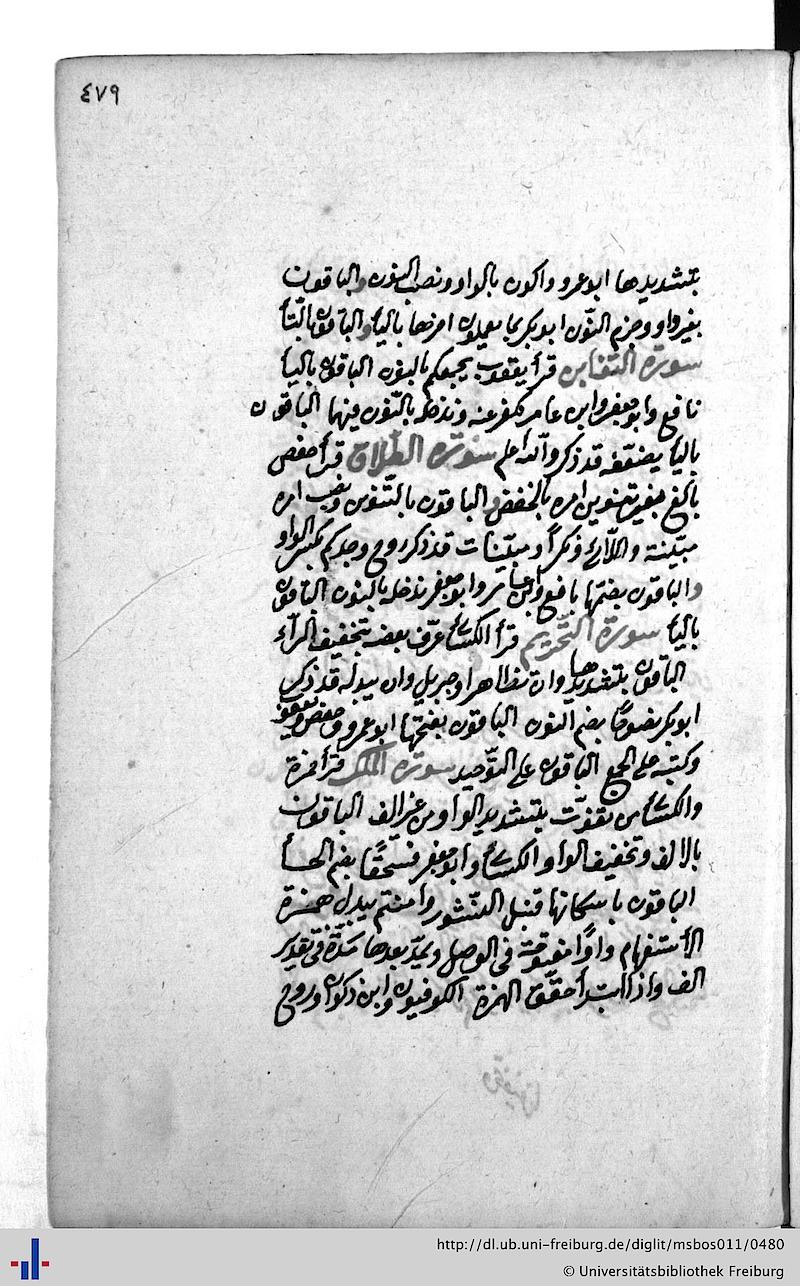 ٤٧٩
بتشديدها ابوعمرو واكون بالواو ونصب النون والباقون
بغير واو وجزم النون ابوبكر بما يعملون اخرها باليأ والباقون بالتأ
سورة التغابن قرأ يعقوب يجمعكم بالنون الباقون باليأ
نافع وابوجعفر وابن عامر نكفر عنه وندخله بالنون فيهما الباقون
باليأ يضعفه قد ذكر والله اعلم سورة الطلاق قرأ حفص
بالغ بغير تنوين امره بالخفض والباقون بالتنوين ونصب امره
مبينة واللائ ونكرا ومبينات قد ذكر روح وجدكم بكسر الواو
والباقون بضمها نافع وابن عامر وابوجعفر ندخله بالنون الباقون
باليأ سورة التحريم قرأ الكسائ عرف بعضه بتخفيف الرآء
الباقون بتشديدها وان تظاهرا وجبريل وان يبدله قد ذكر
ابوبكر نصوحا بضم النون الباقون بفتحها ابوعمرو وحفص ويعقوب
وكتبه على الجمع الباقون على التوحيد سورة الملك قرأ حمزة
والكسائ من تفوت بتشديد الواو من غير الف الباقون
بالالف وتخفيف الواو الكسائ وابوجعفر فسحقا بضم الحأ
الباقون باسكانها قنبل النشور وامنتم يبدل همزة
الاستفهام واوا مفتوحة في الوصل ويمد بعدها مدة في تقدير
الف واذا ابتدأ حقق الهمزة الكوفيون وابن ذكوان وروح
http://dl.ub.uni-freiburg.de/diglit/msbos011/0480
© Universitätsbibliothek Freiburg